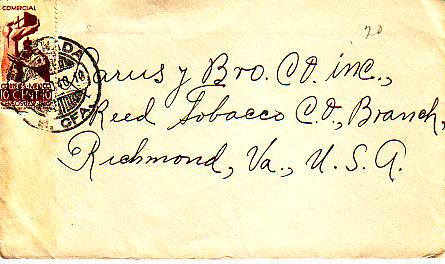 COMERCIAL
10 CENTAVOS
20
Larus y Bro. Co. inc.,
Reed Tobacco Co., Branch,
Richmond, Va., U. S. A.